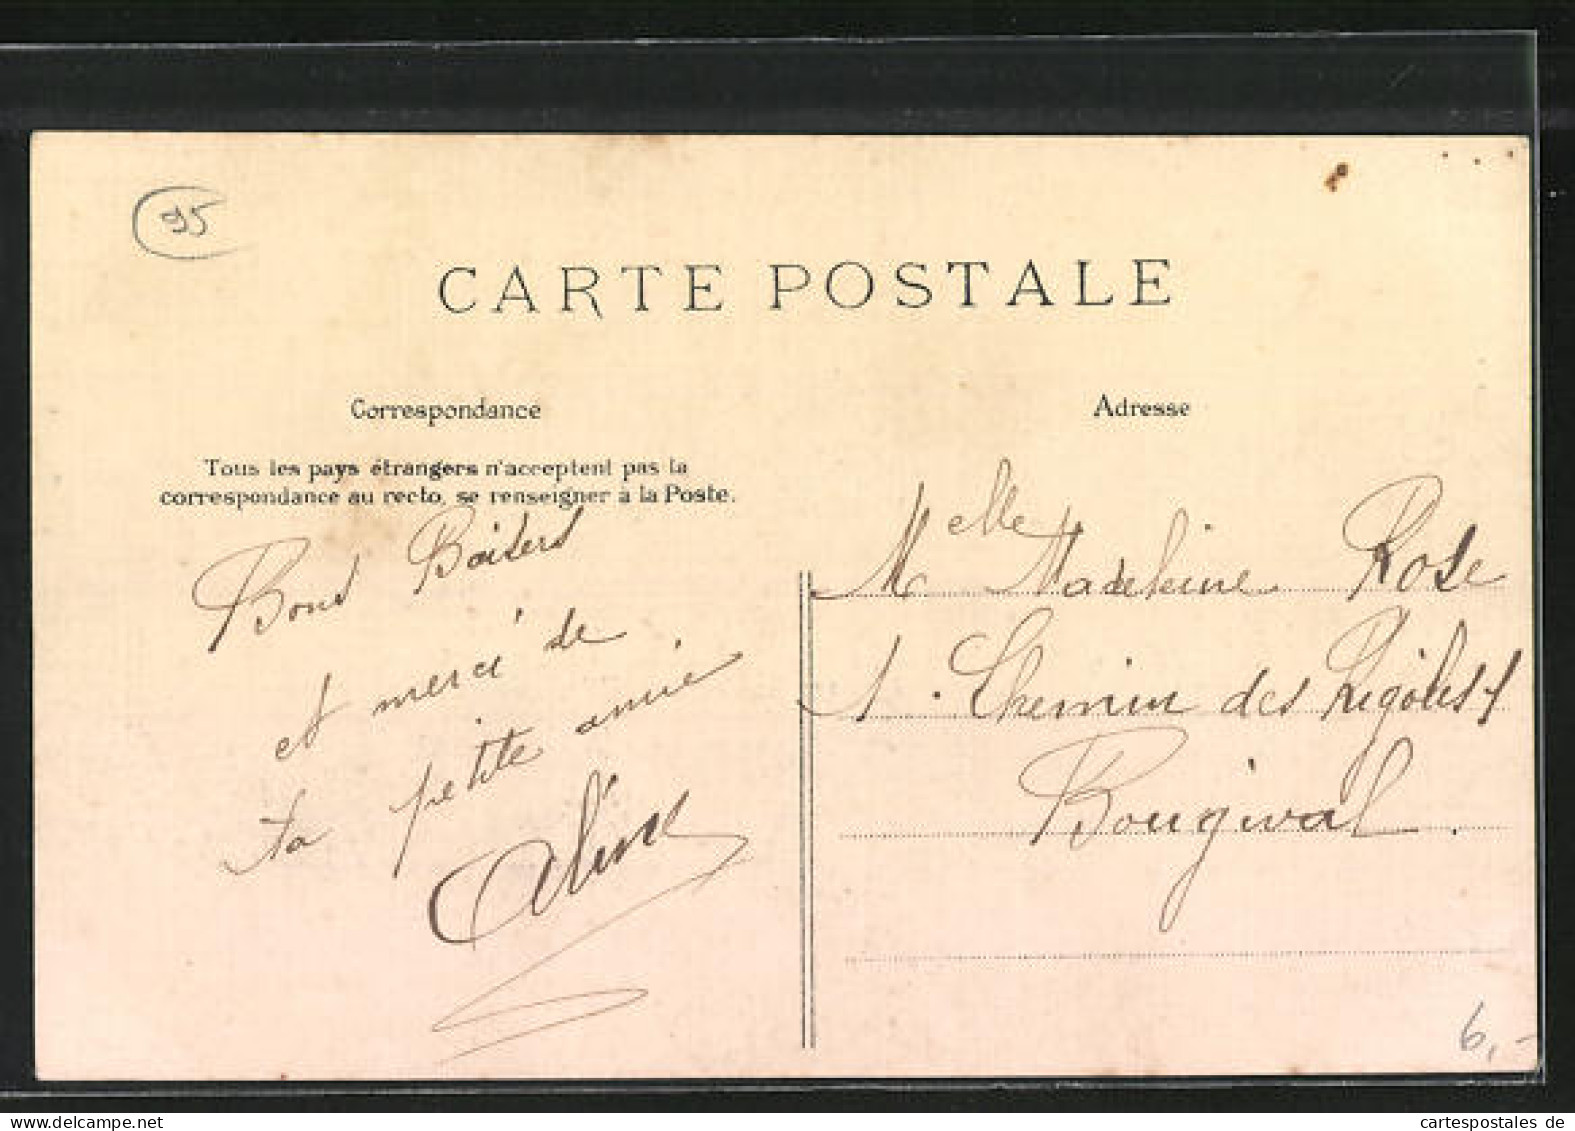 95
CARTE POSTALE
Correspondance
Tous les pays étrangers n'acceptent pas la
correspondance au recto, se renseigner à la Poste.
Bons Baisers
et merci de
ta petite amie
Aline
Adresse
Melle Madeleine Rose
1 . Chemin des Rigoles
Bougival.
6,-
cartespostales de